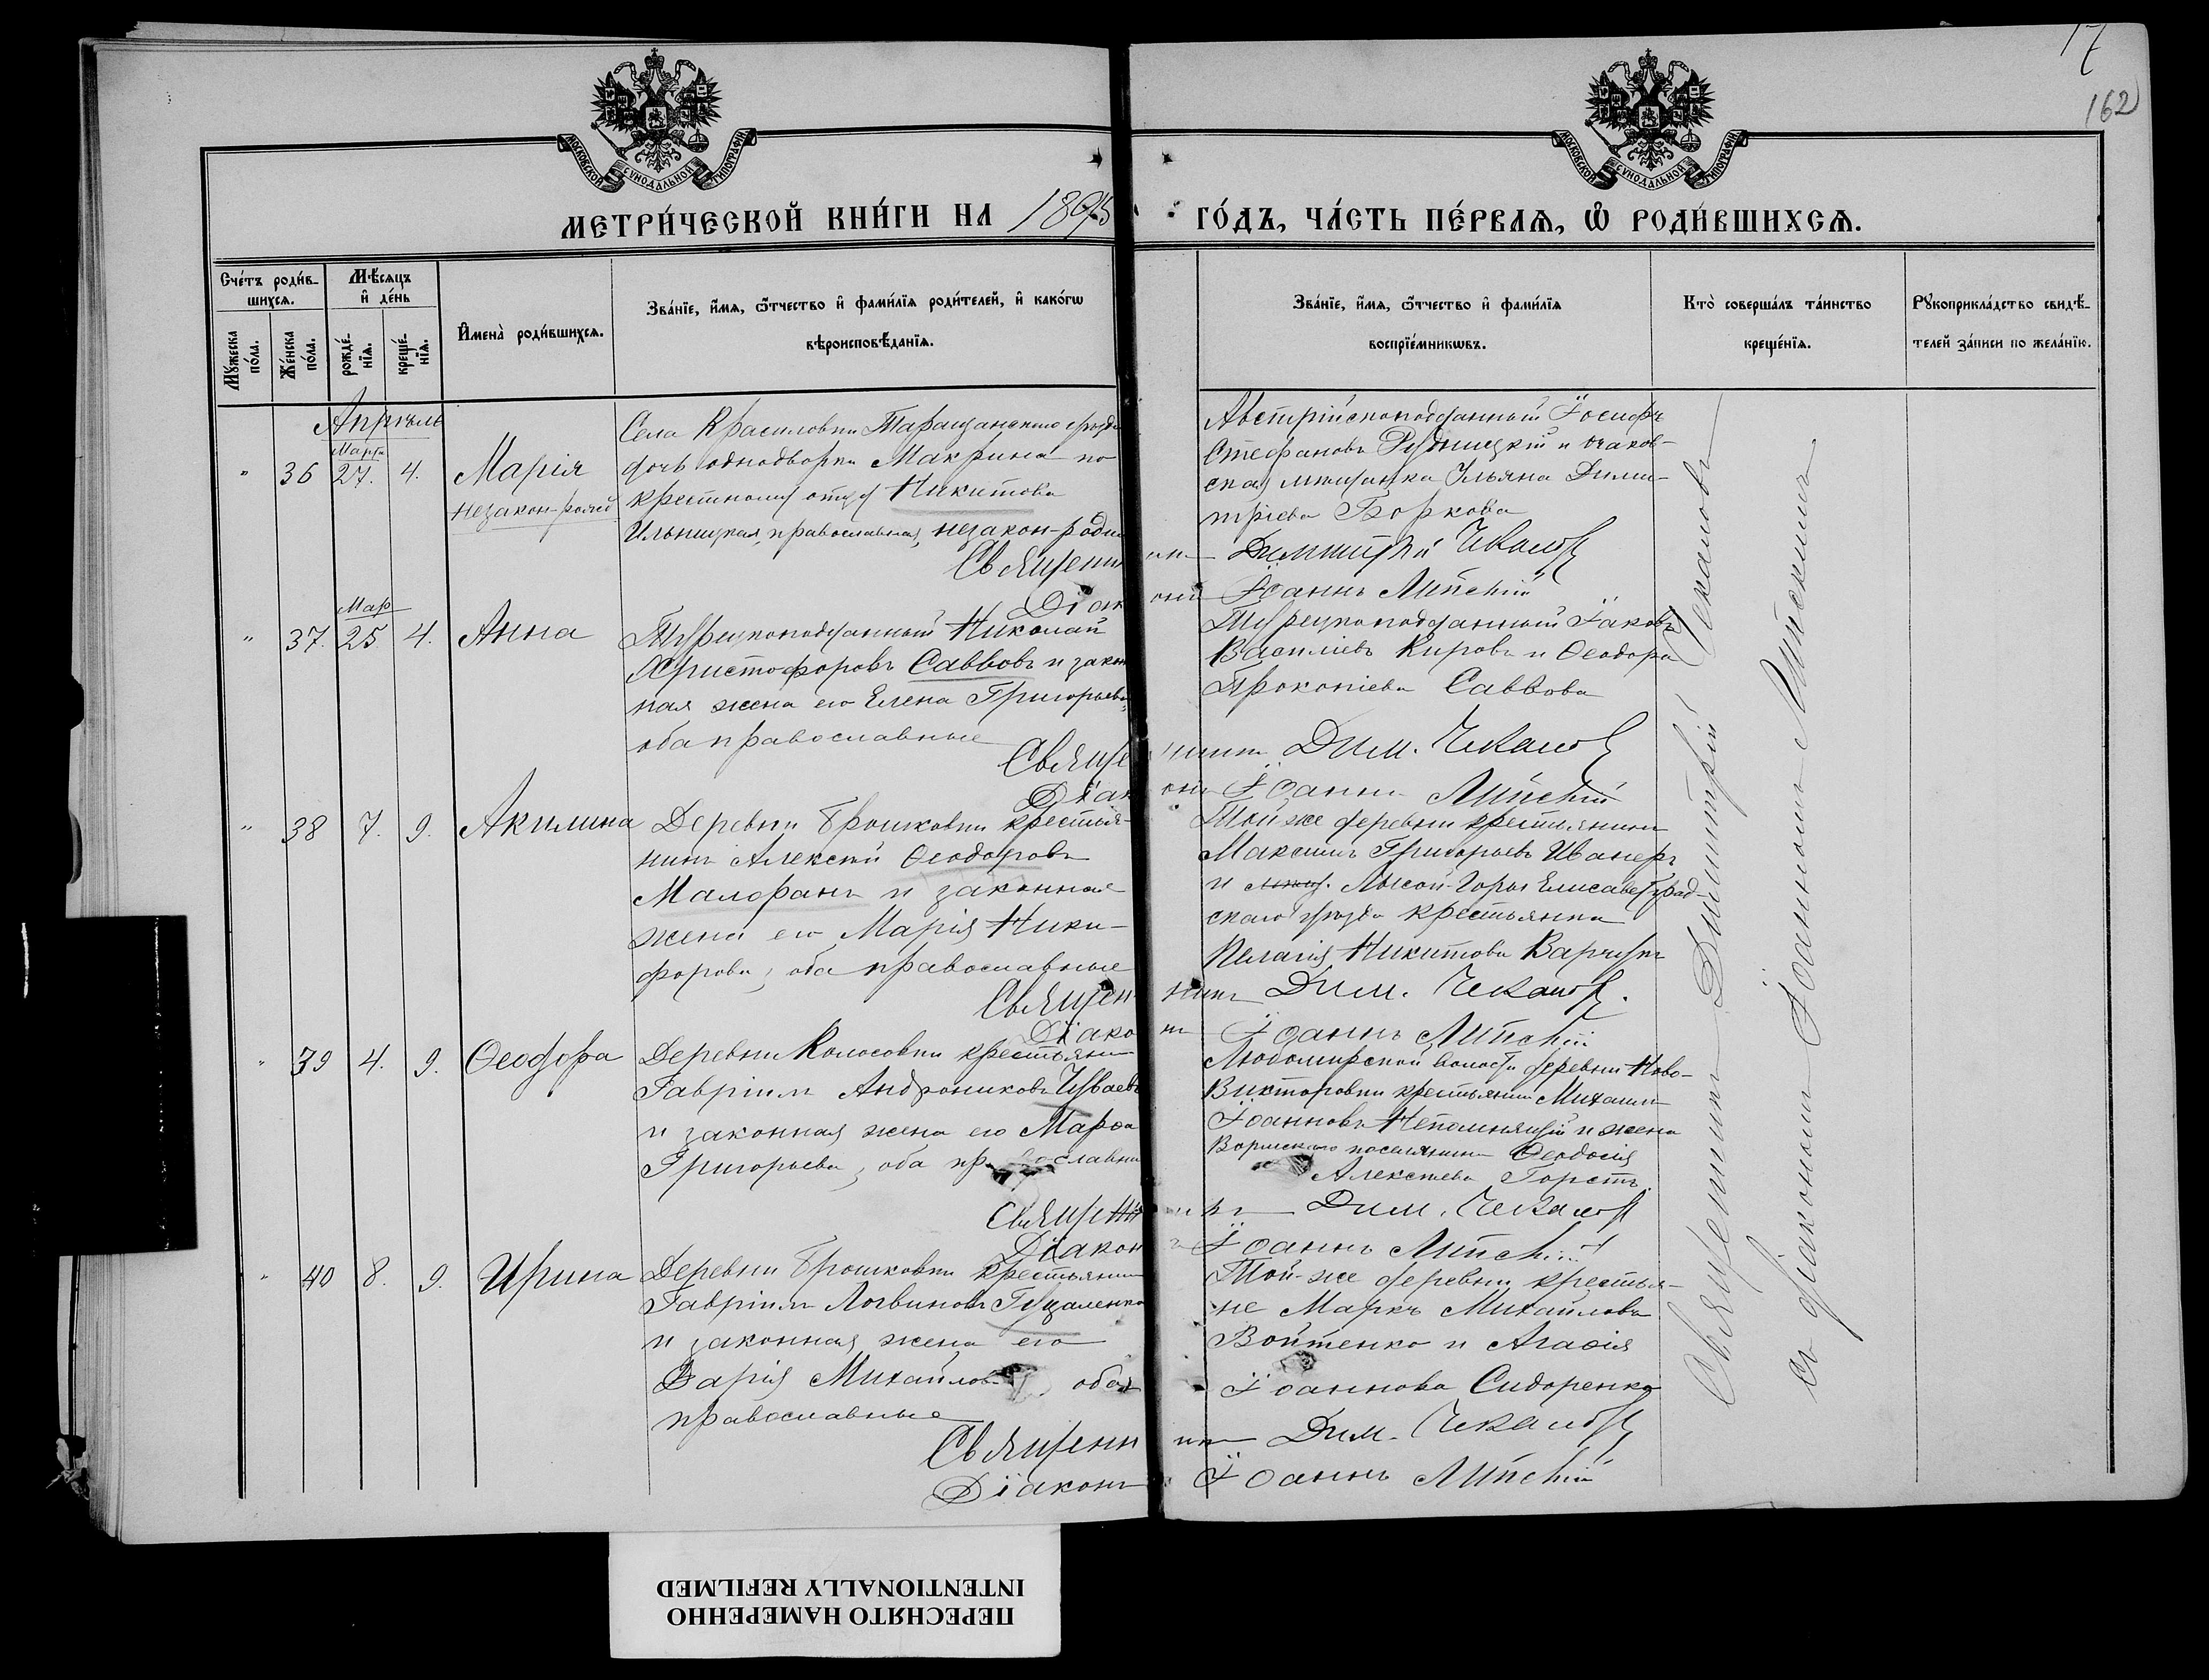 17
162
МОСКОВСКОЙ СѴНОДАЛЬНОЙ ТИПОГРАФІИ
МОСКОВСКОЙ СѴНОДАЛЬНОЙ ТИПОГРАФІИ
МЕТРИ́ЧЕСКОЙ КНИ́ГИ НА 1895 ГО́ДЪ, ЧА́СТЬ ПЕ́РВАѦ, Ѡ҆ РОДИ́ВШИХСѦ.
Сче́тъ роди́вшихсѧ.
Мꙋ́жеска по́ла.
Же́нска по́ла.
Мѣ́сѧцъ и҆ де́нь
рожде́нїѧ.
креще́нїѧ.
И҆мена̀ роди́вшихсѧ.
Зва́нїе, и҆́мѧ, ѻ҆́тчество и҆ фами́лїѧ роди́телей, и҆ како́гѡ
вѣроисповѣ́данїѧ.
Зва́нїе, и҆́мѧ, ѻ҆́тчество и҆ фами́лїѧ
воспрїе́мникѡвъ.
Кто̀ соверша́лъ та́инство
креще́нїѧ.
Рꙋкоприкла́дство свидѣ́телей за́писи по жела́нїю.
Апрѣль
" 36 Марта 27. 4. Марія
незакон-рожд
Села Красиловки Таращанскаго уѣзда
дочь однодворки Макрина по
крестному отцу Никитова
Ильницкая, православная, незакон-родил
Австрійскоподданный Іосифъ
Стефановъ Рудницкій и очаков-
ская мѣщанка Ульяна Дими-
тріева Боркова
Священникъ Димитрій Чекановъ
Діаконъ Іоаннъ Липскій
" 37. Мар 25 4. Анна
Турецкоподданный Николай
Христофоровъ Саввовъ и закон
ная жена его Елена Григорьева,
оба православные
Турецкоподданный Іаковъ
Василіевъ Кировъ и Ѳеодора
Прокопіева Саввова
Священникъ Дим. Чекановъ
Діаконъ Іоаннъ Липскій
" 38 7. 9. Акилина
Деревни Брошковки крестья-
нинъ Алексѣй Ѳеодоровъ
Малофанъ и законная
жена его Марія Ники-
форова, оба православные
Той же деревни крестьянинъ
Максимъ Григорьевъ
и Лысой-Горы Елисаветград-
скаго уѣзда крестьянка
Пелагія Никитова
Священникъ Дим. Чекановъ.
Діаконъ Іоаннъ Липскій
" 39 4. 9. Ѳеодора
Деревни Колосовки крестьянинъ
Гавріилъ Андрониковъ Чуваевъ
и законная жена его Марѳа
Григорьева, оба православные
Любомирской волости деревни Ново-
Викторовки крестьянинъ Михаилъ
Іоанновъ Непомнящій и жена
поселянина Ѳеодосія
Алексѣева Горстъ.
Священникъ Дим. Чекановъ
Діаконъ Іоаннъ Липскій
" 40 8. 9. Ирина
Деревни Брошковки крестьянинъ
Гавріилъ Логвиновъ Гуцаленко
и законная жена его
Дарія Михайлова, оба
православные
Той-же деревни крестья-
не Маркъ Михайловъ
Войтенко и Агафія
Іоаннова Сидоренко
Священникъ Дим. Чекановъ
Діаконъ Іоаннъ Липскій
Священникъ Димитрій Чекановъ
съ діакономъ Іоанномъ Липскимъ
ПЕРЕСНЯТО НАМЕРЕННО
INTENTIONALLY REFILMED